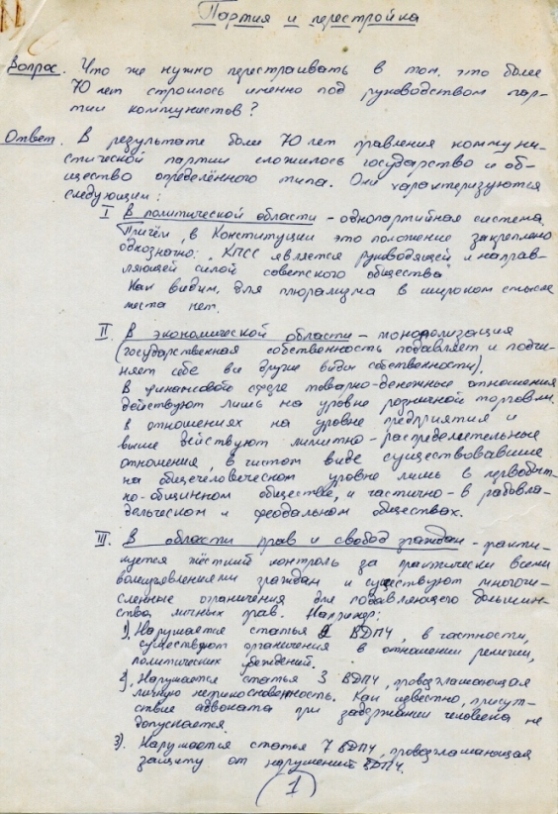 Партия и перестройка
Вопрос. Что же нужно перестраивать в том, что более
70 лет строилось именно под руководством пар-
тии коммунистов?
Ответ. В результате более 70 лет правления коммуни-
стической партии сложилось государство и об-
щество определённого типа. Они характеризуются
следующим:
I В политической области – однопартийная система.
Причём, в Конституции это положение закреплено
однозначно: „КПСС является руководящей и направ-
ляющей силой советского общества"
Как видим, для плюрализма в широком смысле
места нет.
II В экономической области – монополизация
(государственная собственность подавляет и подчи-
няет себе все другие виды собственности).
В финансовой сфере товарно-денежные отношения
действуют лишь на уровне розничной торговли.
В отношениях на уровне предприятия и
выше действуют лимитно-распределительные
отношения, в чистом виде существовавшие
на общечеловеческом уровне лишь в первобыт-
но-общинном обществе, и частично – в рабовла-
дельческом и феодальном обществах.
III. В области прав и свобод граждан – практи-
куется жёсткий контроль за практически всеми
волеизъявлениями граждан и существуют многочи-
сленные ограничения для подавляющего большин-
ства личных прав. Например:
1) Нарушается статья 2 ВДПЧ, в частности,
существуют ограничения в отношении религии,
политических убеждений.
2) Нарушается статья 3 ВДПЧ, провозглашающая
личную неприкосновенность. Как известно, присут-
ствие адвоката при задержании человека не
допускается.
3) Нарушается статья 7 ВДПЧ, провозглашающая
защиту от нарушений ВДПЧ.
1